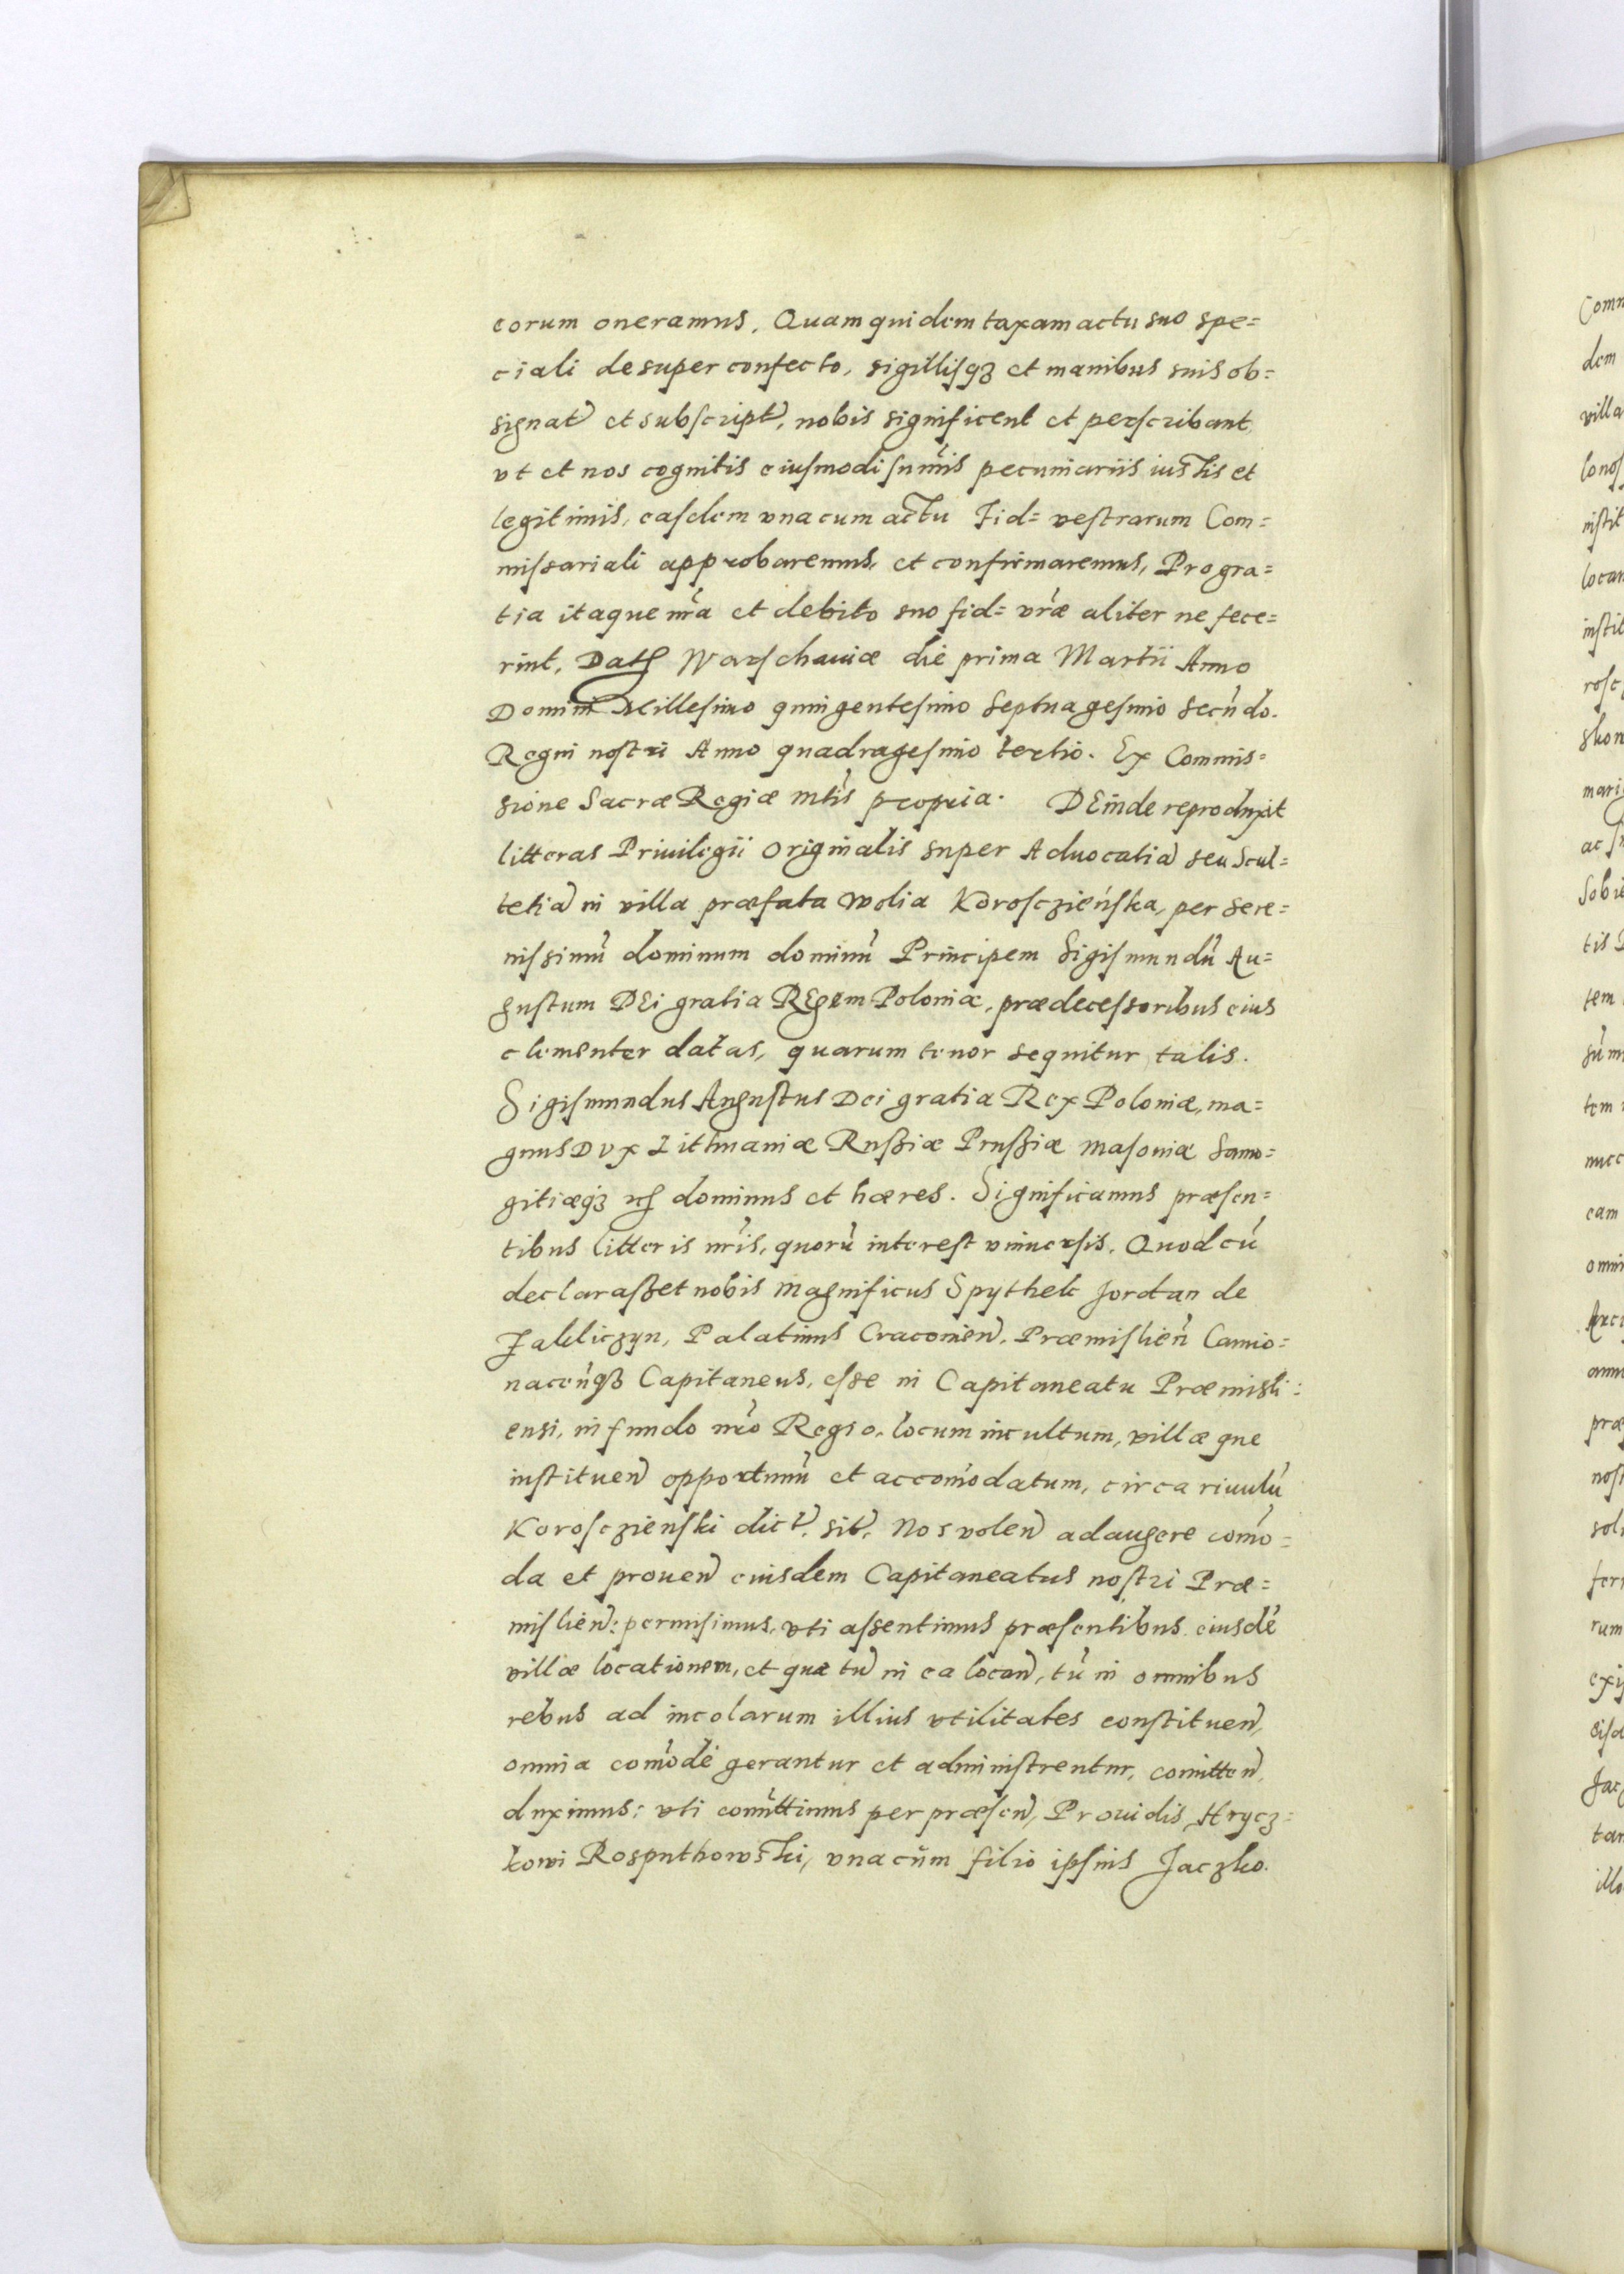 eorum oneramus, Quam quidem taxam actu suo spe=
ciali desuper confecto, sigillisqꝫ et manibus suis ob=
signat̃ et subscript̃, nobis significent et perscribant,
vt et nos cognitis eiusmodi sum̃is pecuniariis iustis et
legitimis, easdem vna cum actu Fid= vestrarum Com=
missariali approbaremus, et confirmaremus, Pro gra=
tia itaque nr̃a et debito suo fid= vr̃æ aliter ne fece=
rint, Datꝭ Warschauiæ die prima Martii Anno
Domini Millesimo quingentesimo septuagesimo secũdo.
Regni nostri Anno quadragesimo tertio. Ex Commis=
sione Sacræ Regiæ Mtĩs propria. DEinde reproduxit
litteras Priuilegii Originalis super Aduocatiã seu Scul=
tetiã in villa præfata Wolia Korosczieńska, per sere=
nissimũ dominum dominũ Principem Sigismundũ Au=
gustum DEi gratia REgem Poloniæ, prædecessoribus eius
clementer datas, quarum tenor sequitur talis.
Sigismundus Augustus Dei gratia Rex Poloniæ, ma=
gnus Dvx Lithuaniæ Russiæ Prussiæ Masouiæ Samo=
gitiæqꝫ etcꝭ dominus et hæres. Significamus præsen=
tibus litteris nr̃is, quorũ interest vniuersis, Quod cũ
declarasset nobis Magnificus Spythek Jordan de
Zakliczyn, Palatinus Cracouien̄, Præmislien̄ Camio=
nacen̄qꝫ Capitaneus, esse in Capitaneatu Præmisli=
ensi, in fundo nr̃o Regio, locum incultum, villæque
instituen̄ opportunũ et accom̃odatum, circa riuulũ
Koroszienski dict̃, sit̃, Nos volen̄ adaugere com̃o=
da et prouen̄ eiusdem Capitaneatus nostri Præ=
mislien̄: permisimus, vti assentimus præsentibus eiusdẽ
villæ locationem, et quæ tũ in ea locan̄, tũ in omnibus
rebus ad incolarum illius vtilitates constituen̄,
omnia com̃ode gerantur et administrentur, com̃itten̄
duximus: vti com̃ittimus per præsen̄, Prouidis, Hrycz=
kowi Rosputhowski, vna cum filio ipsius Jaczko.